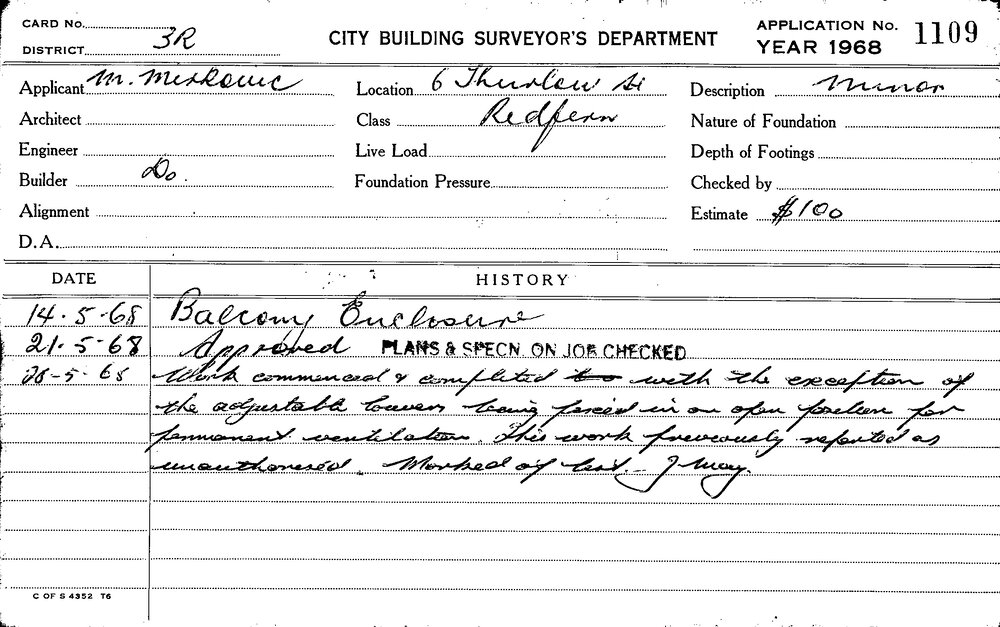 CARD No.
DISTRICT 3R
CITY BUILDING SURVEYOR'S DEPARTMENT
APPLICATION No. 1109
YEAR 1968
Applicant M. Mirkovic
Location 6 Thurlow St
Description Minor
Architect
Class Redfern
Nature of Foundation
Engineer
Live Load
Depth of Footings
Builder Do.
Foundation Pressure
Checked by
Alignment
Estimate $100
D.A.
DATE HISTORY
14.5.68 Balcony Enclosure
21.5.68 Approved PLANS & SPECN. ON JOB CHECKED
28-5-68 Work commenced & completed with the exception of
the adjustable louvers being fixed in an open position for
permanent ventilation. This work previously reported as
unauthorised. Marked off list. J May.
C OF S 4352 T6